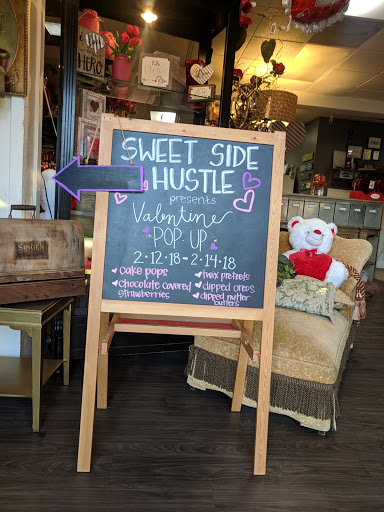 SWEET SIDE
HUSTLE
presents
Valentine
POP-UP
2-12-18 - 2-14-18
cake pops
chocolate covered
strawberries
twix pretzels
dipped oreos
dipped nutter
butters
SINGER
HERO